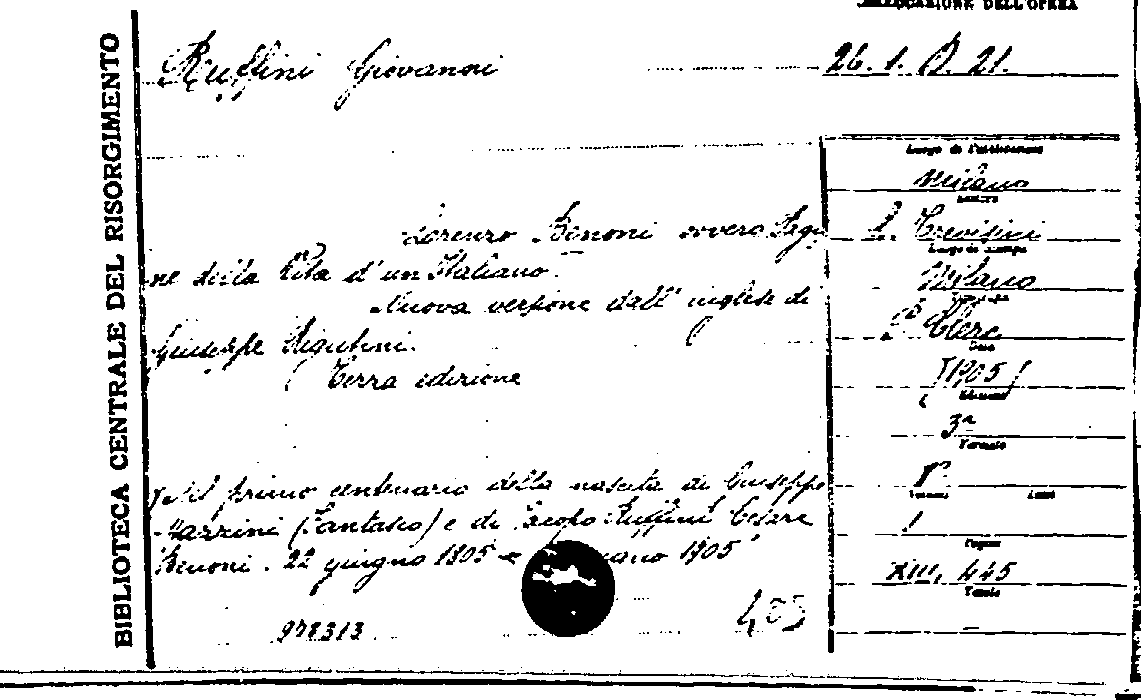 COLLOCAZIONE DELL'OPERA
BIBLIOTECA CENTRALE DEL RISORGIMENTO
Ruffini Giovanni
26. 1. B. 21.
Lorenzo Benoni ovvero Pagi
ne della Vita d'un Italiano.
Nuova versione dall' inglese di
Giuseppe Rigutini.
Terza edizione
Nel primo centenario della nascita di Giuseppe
Mazzini (Fantasio) e di Jacopo Ruffini Cesare
Benoni. 22 giugno 1805
1905
978313
Luogo de l'istituzione
Milano
L. Trevisini
Luogo di stampa
Milano
Clerc
Data
[1905]
Edizione
3ª
Formato
8°
1
Pagine
XIII, 445
Tavole